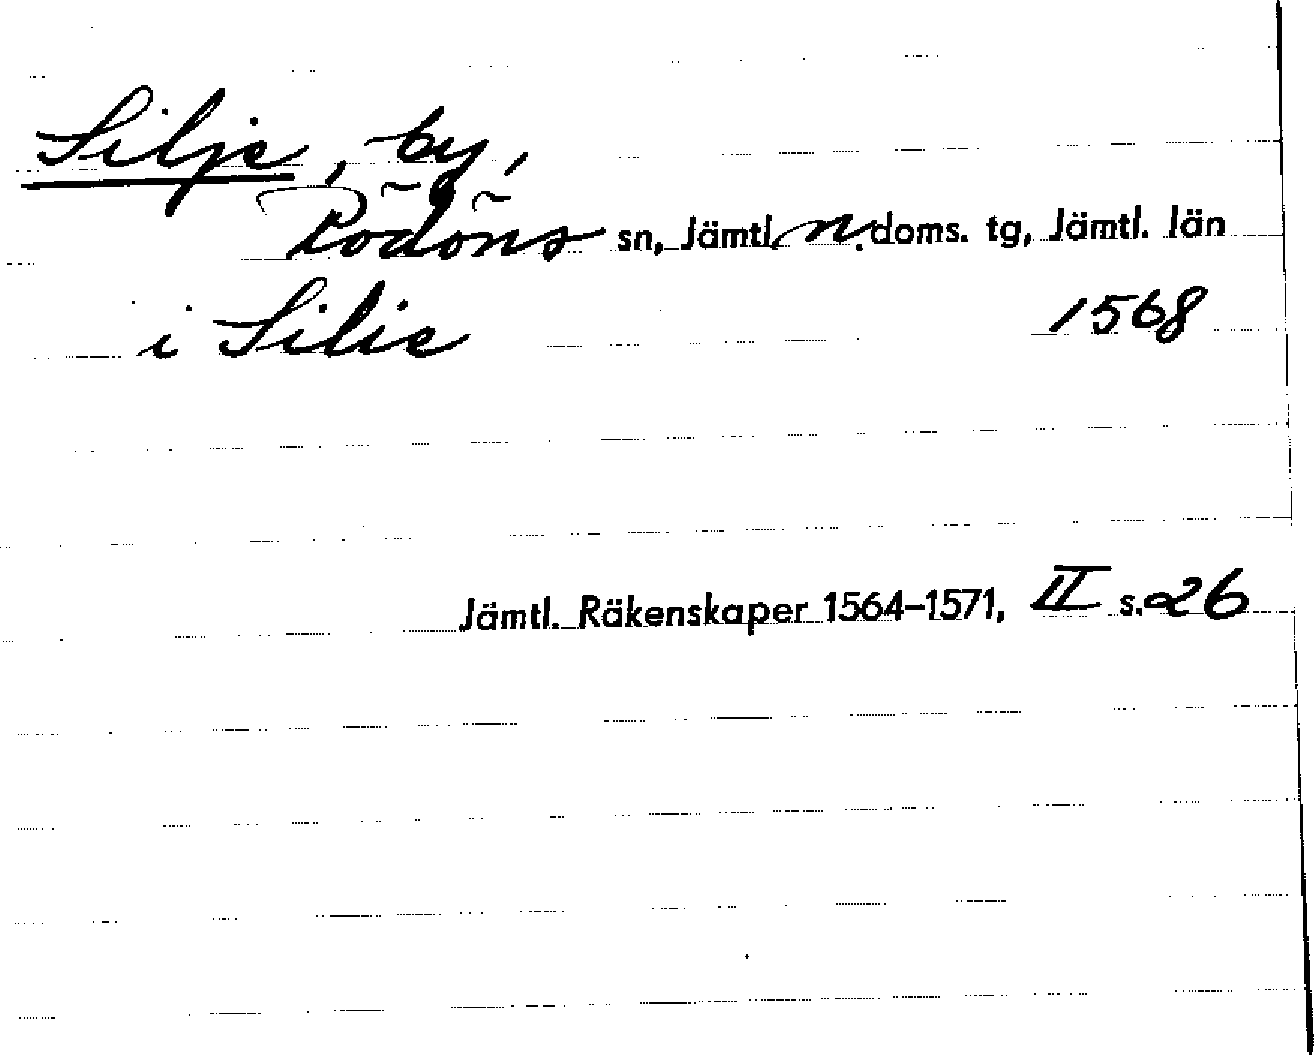 Silje, by,
Rödöns sn, Jämtl. n. doms. tg, Jämtl. län
i Silie 1568
Jämtl. Räkenskaper 1564–1571, II s. 26